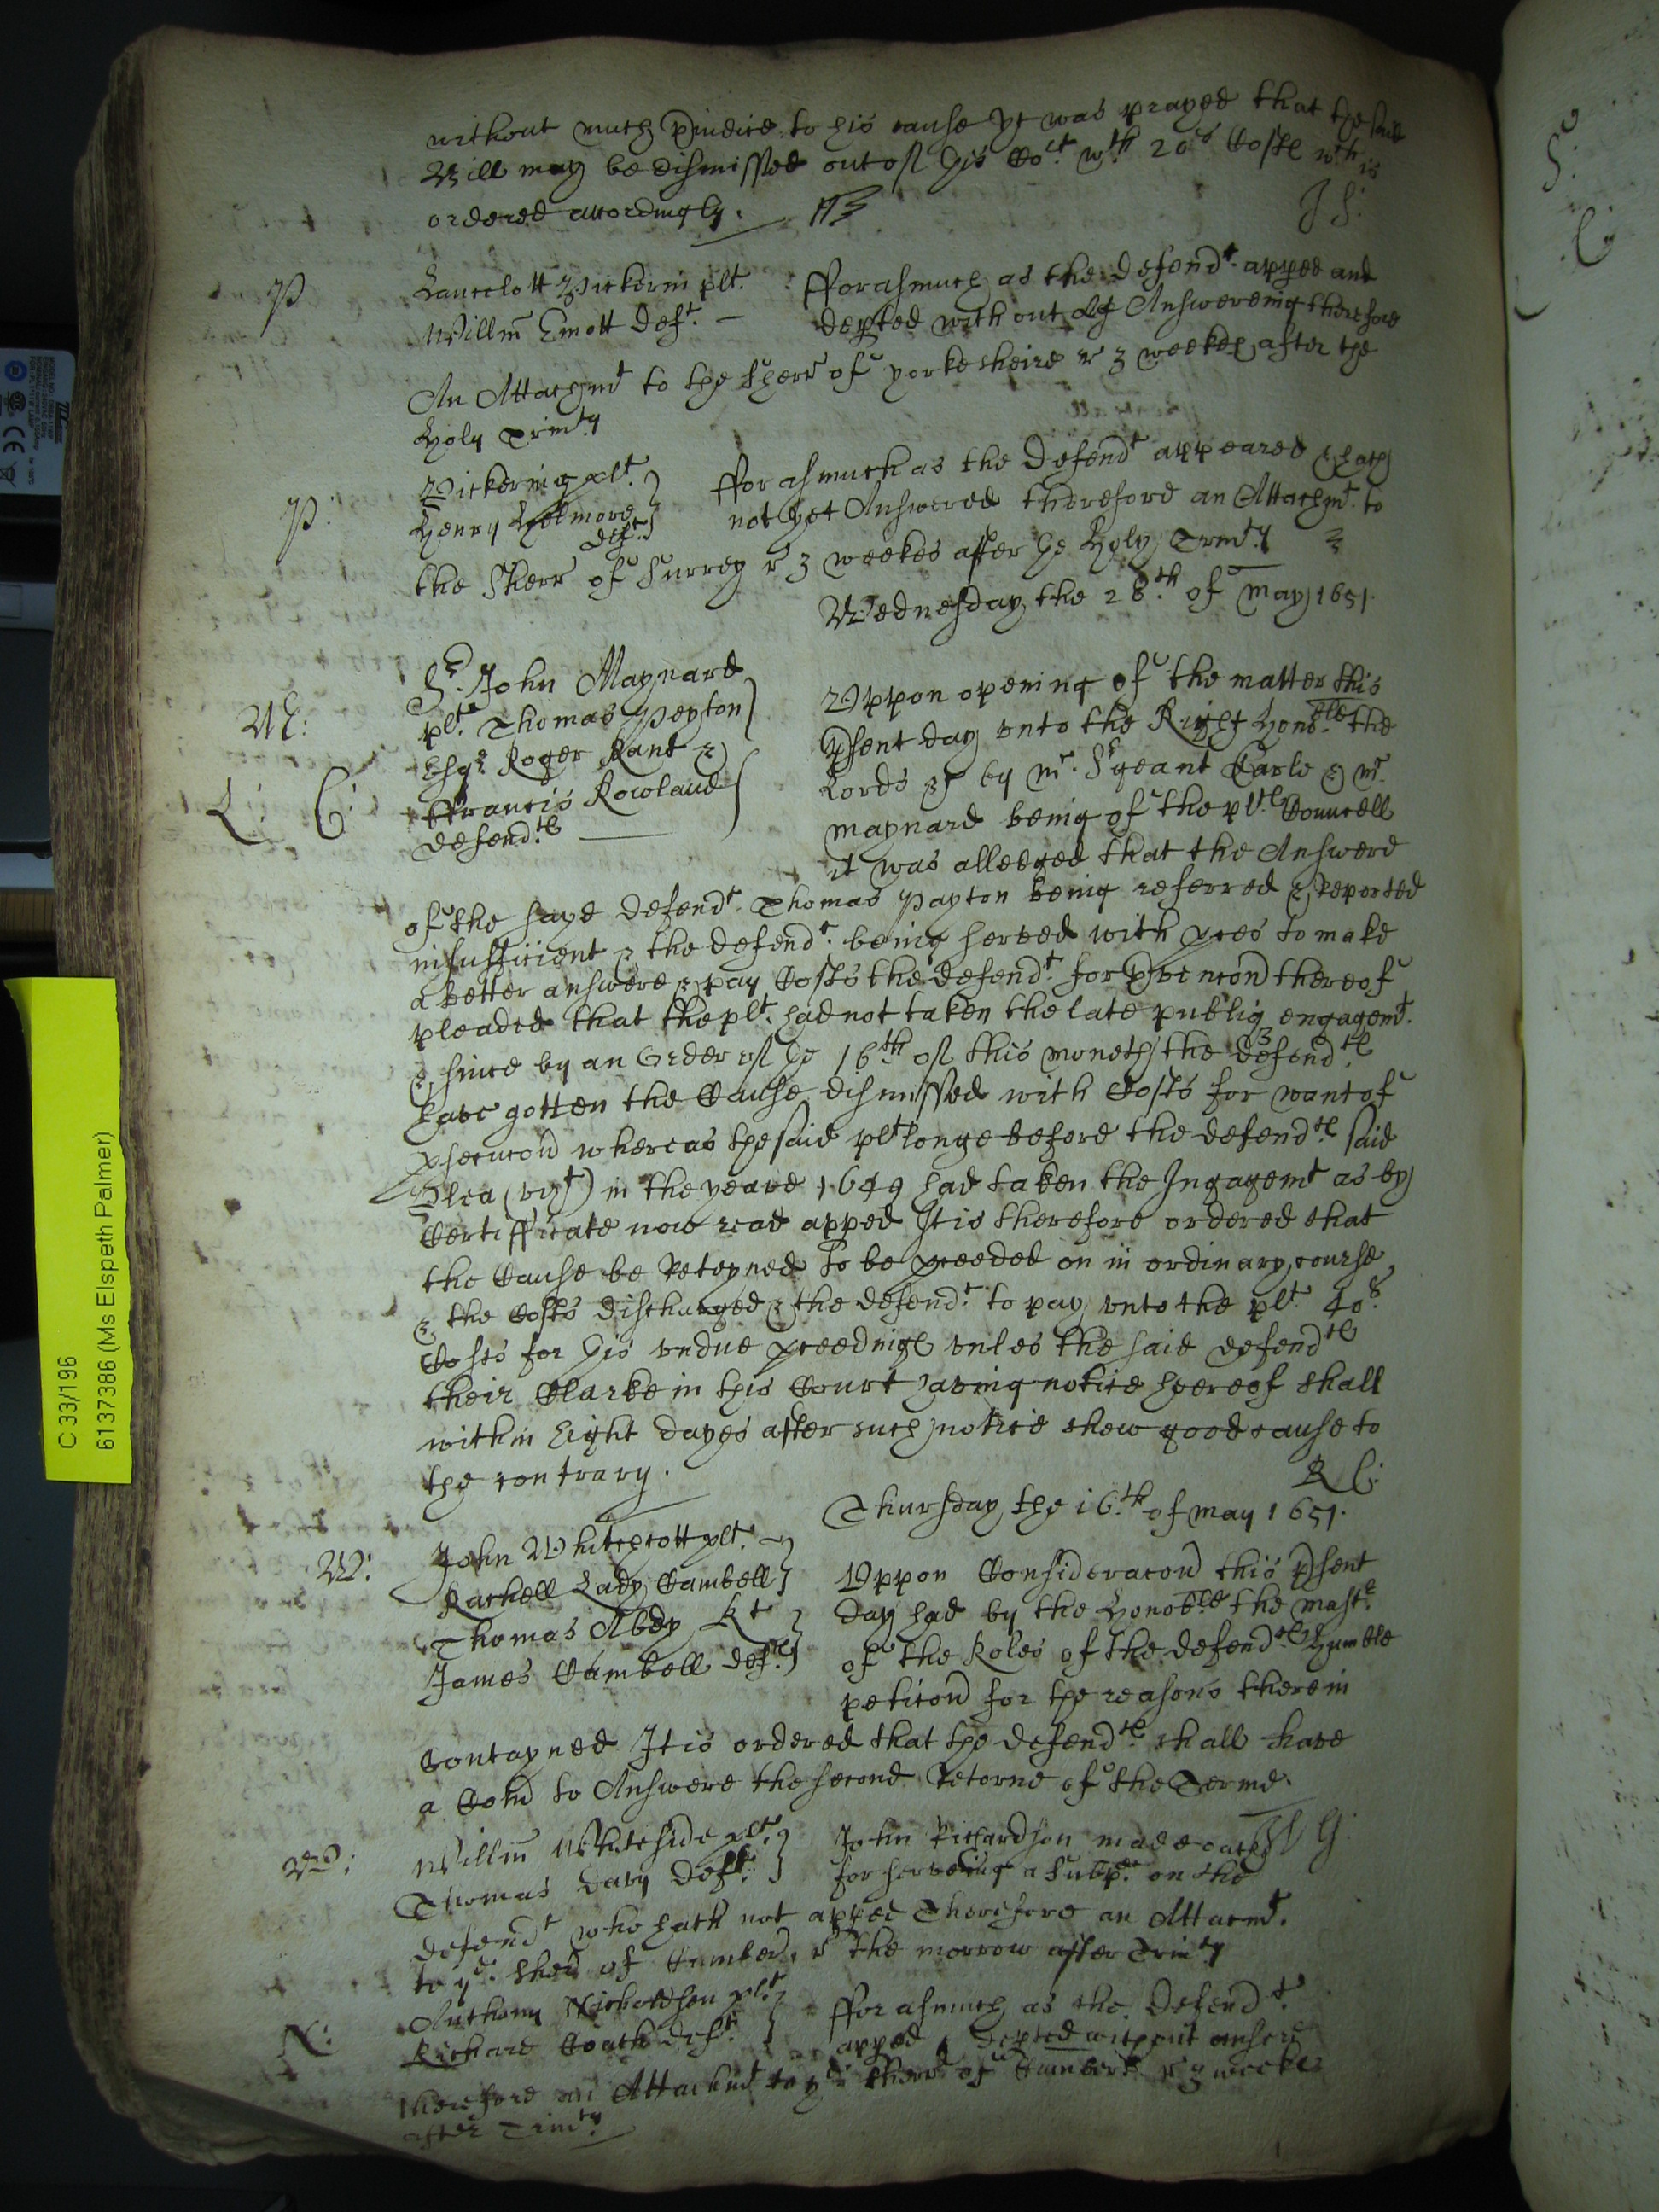 without much p̲iudice to his cause yt was prayed that the said
Bill may be dismissed out of this Co:rt wth 20s Costs wch is
ordered accordingly.
J S:
P
Lancelott Pickerin plt.
Willm Emott Deft. —
fforasmuch as the defendt. apped and
depted without Answereing therefore
An Attachmt to the Sherr of yorkesheire r 3 weekes after the
Holy Trinty
P:
Pickering plt.
Henry
deft.
fforasmuch as the Defendt appeared & hath
not yet Answered therefore an Attachmt. to
the Sherr of Surrey r 3 weekes after ye Holy Trinty
Wednesday the 28.th of May 1651.
M:
L: C:
Sr. John Maynard
plt. Thomas Peyton
Esqr Roger Kant &
ffrancis Rowland
defendts
Uppon opening of the matter this
psent day unto the Right Honoble. the
Lords &c by Mr. Srgeant Earle & Mr.
Maynard being of the plts. Councell
it was alledged that the Answere
of the said defendt. Thomas Payton being referred & reported
insufficient & the defendt. being served with pces to make
a better answere & pay Costs the defendt. for pvencon thereof
pleaded that the plt. had not taken the late publiq engagemt.
& since by an Order of ye 16th of this moneth the defendts
have gotten the Cause dismissed with Costs for want of
psecucon whereas the said plt longe before the defendts said
Plea (vizt) in the yeare 1649 had taken the Ingagemt as by
Certifficate now read apped It is therefore ordered that
the Cause be reteyned to be pceeded on in ordinary course
& the Costs discharged & the defendt. to pay unto the plt. 40s.
Costs for his undue pceedings unles the said defendts
their Clarke in this Court haveing notice hereof shall
within Eight dayes after such notice shew good cause to
the contrary.
R C:
Thursday the 16.th of May 1651.
W:
John Whitchcott plt.
Rachell Lady Cambell
Thomas Abdy Kt
James Cambell defts
Uppon Consideracon this psent
day had by the Honoble the Mastr.
of the Roles of the defendts humble
peticon for the reasons therein
Contayned It is ordered that the defendts shall have
a Com to Answere the second Retorne of the Terme.
W:
Willm Whiteside plt.
Thomas Davy Deft.
John Richardson made oath
for serveing a Subp. on the
Defendt who hath not apped Therefore an Attachmt.
to ye. Sherr of Cumberl. r the morrow after Trinty
N:
Anthony Nicholdson plt
Richard Coath deft.
fforasmuch as the Defendt.
apped & depted without answere
therefore an Attachmt to ye Sherr of Cumberl r 3 weekes
after Trinty
C 33/196
61 37386 (Ms Elspeth Palmer)